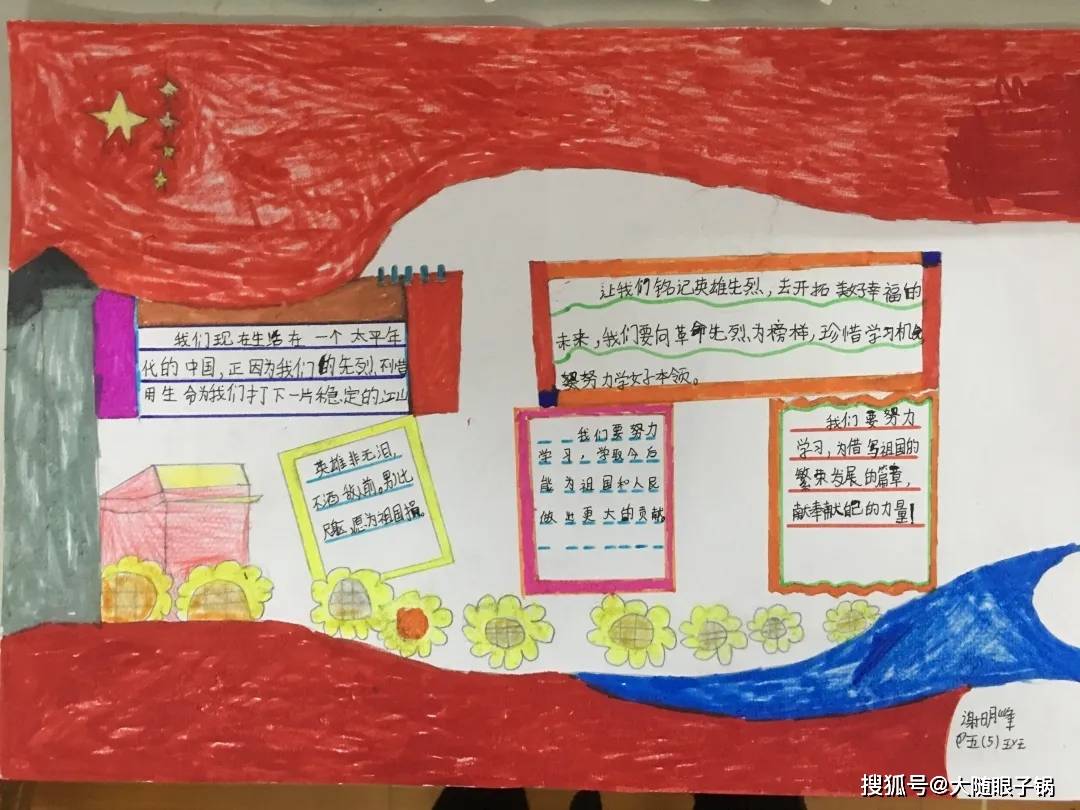 我们现在生活在一个太平年
代的中国,正因为我们的先烈不惜
用生命为我们打下一片稳定的江山
让我们铭记英雄先烈,去开拓美好幸福的
未来,我们要向革命先烈为榜样,珍惜学习机会
努力学好本领。
英雄非无泪,
不洒敌人前。男儿七
尺躯,愿为祖国捐。
我们要努力
学习,争取今后
能为祖国和人民
做出更大的贡献
我们要努力
学习,为借写祖国的
繁荣发展的篇章,
献奉献自己的力量!
谢明峰
搜狐号@大随眼子锅